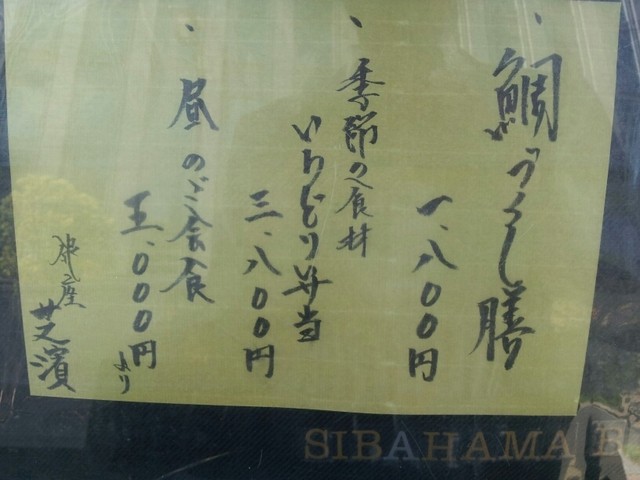 、鯛づくし膳
一、八〇〇円
、季節の食材
いろどり弁当
三、八〇〇円
、昼のご会食
五、〇〇〇円より
銀座 芝濱
SIBAHAMA B